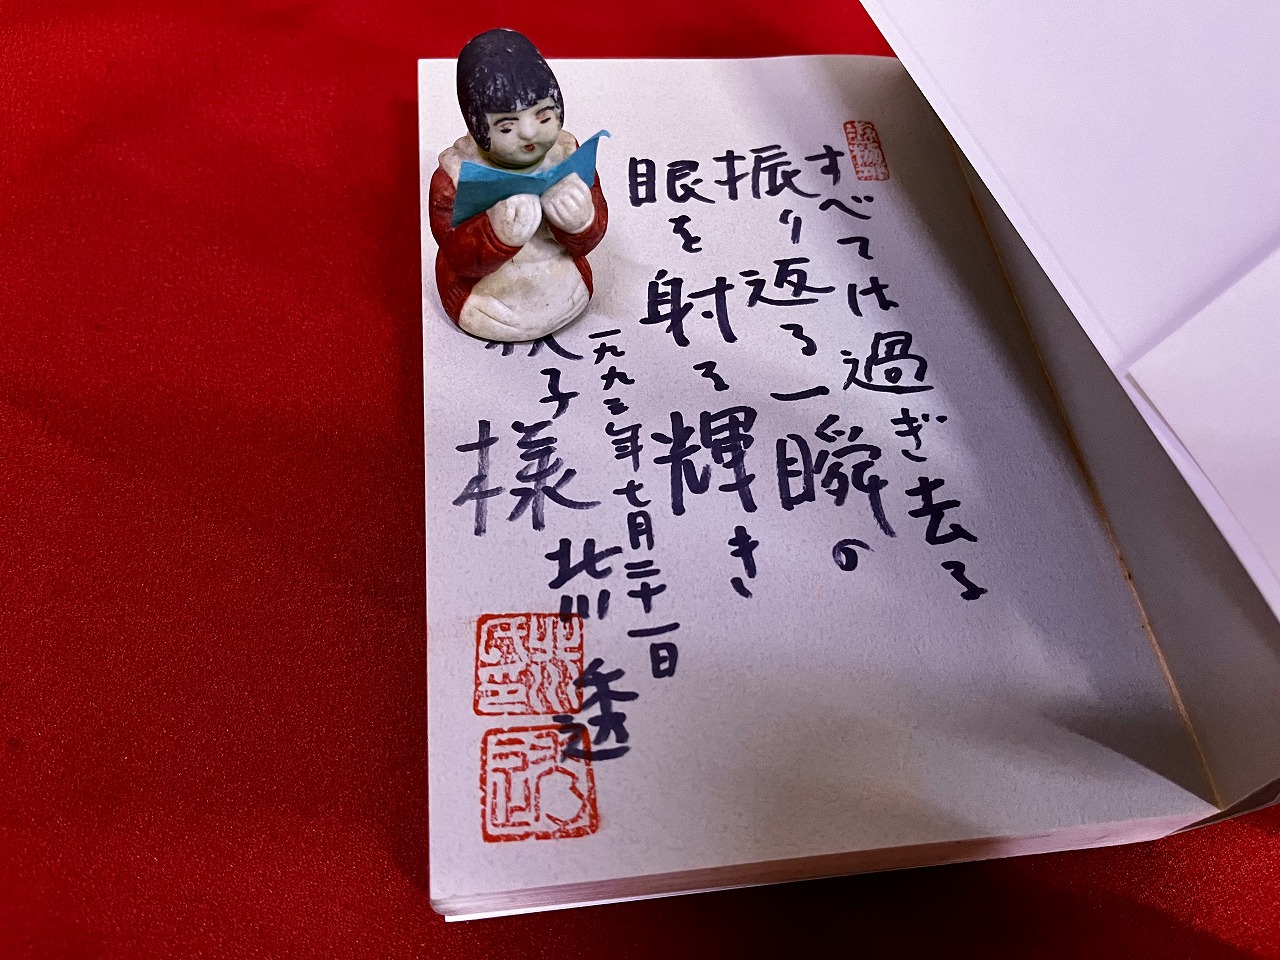 すべては過ぎ去る
振り返る一瞬の
眼を射る輝き
一九九三年七月二十一日
北川 透
子様